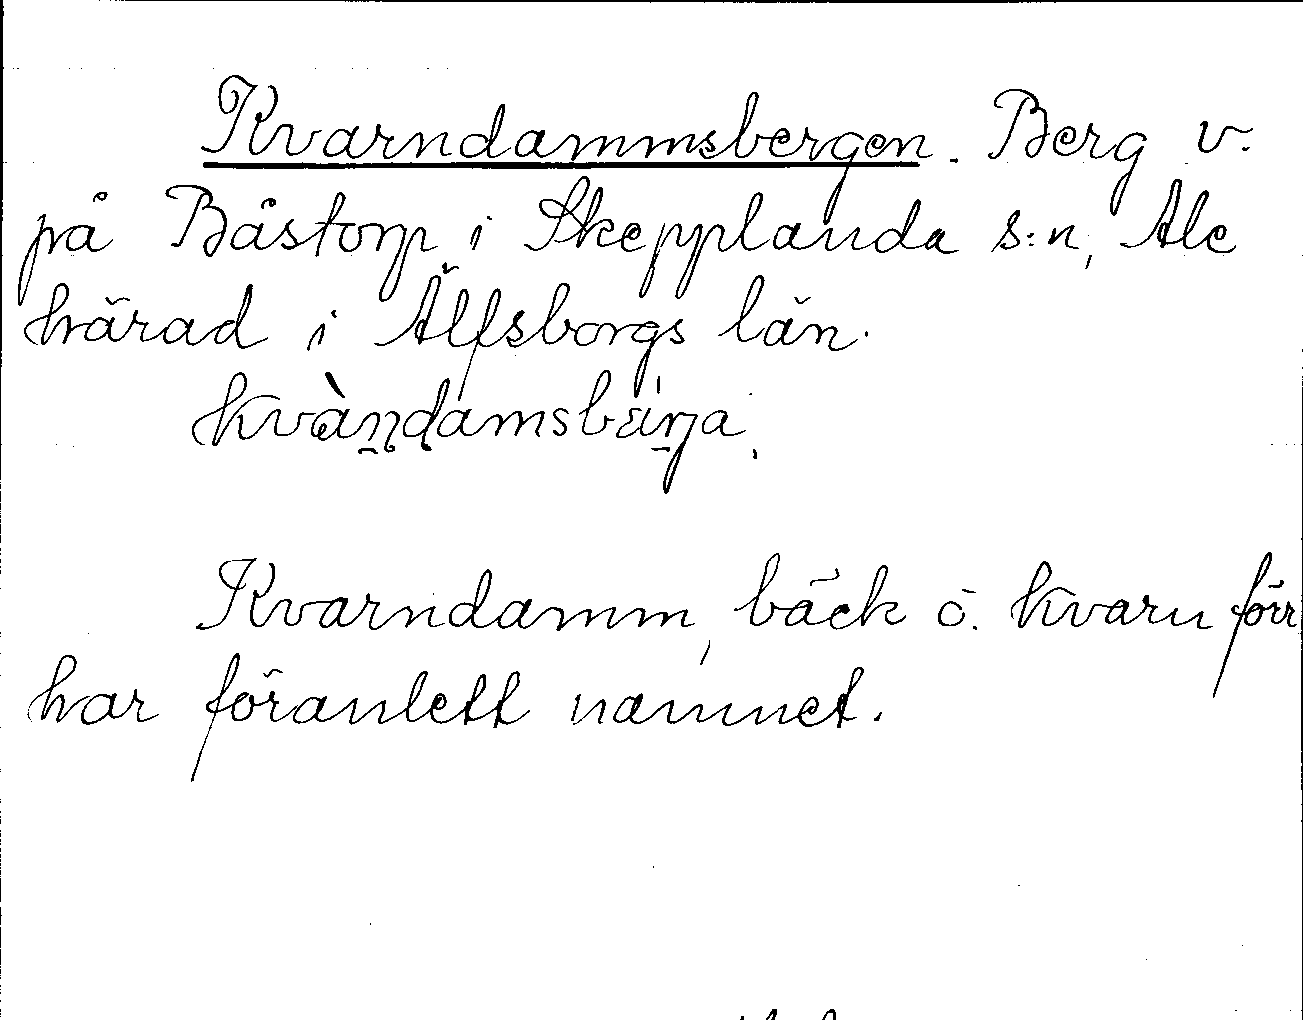 Kvarndammsbergen. Berg v.
på Båstorp i Skepplanda s:n, Ale
härad i Älfsborgs län.
kvàṉdamsbä́rja.
Kvarndamm, bäck o. kvarn förr
har föranlett namnet.